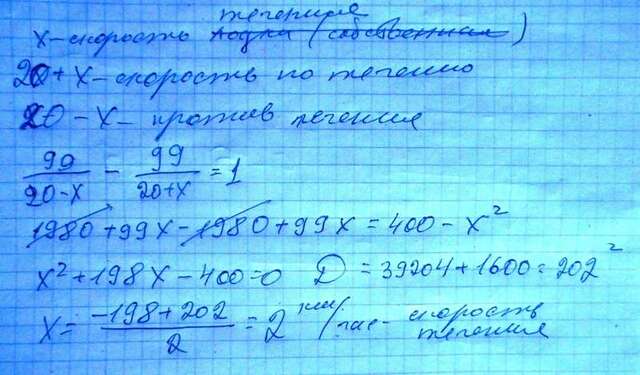 течения
x - скорость лодки (собственная)
20 + x - скорость по течению
20 - x - против течения
99/(20-x) - 99/(20+x) = 1
1980 + 99x - 1980 + 99x = 400 - x²
x² + 198x - 400 = 0 D = 39204 + 1600 = 202²
x = (-198 + 202)/2 = 2 км/час - скорость течения